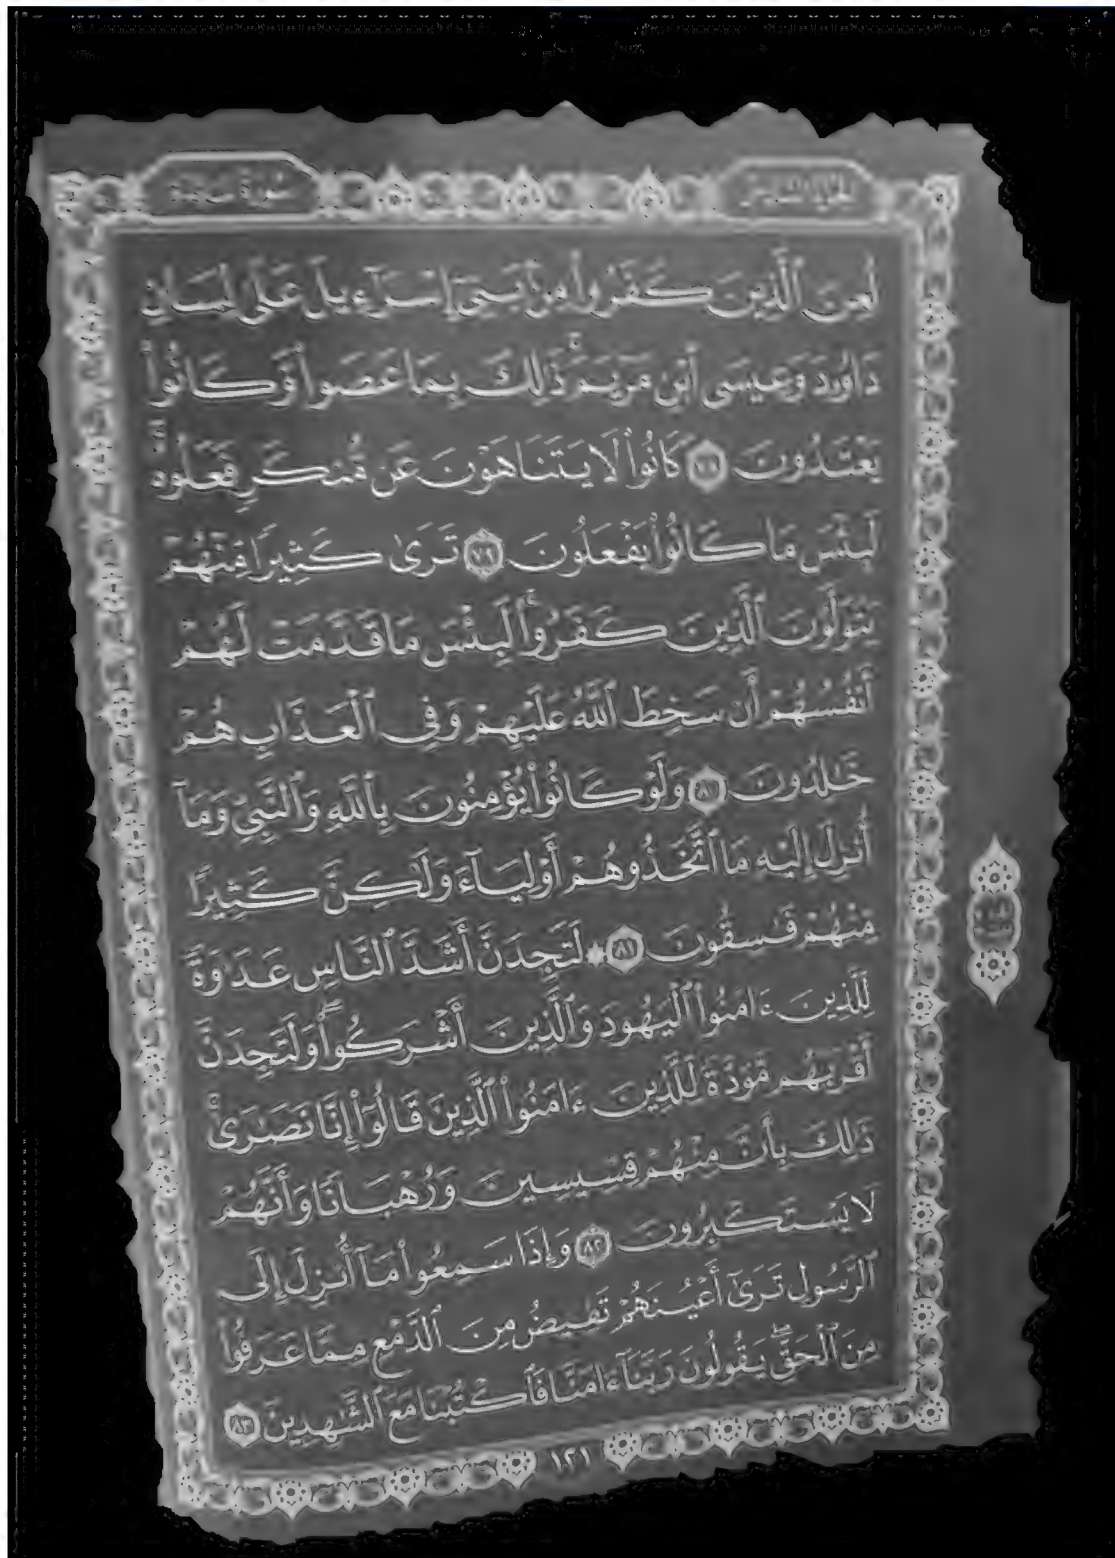 الجزء السادس
سورة المائدة
لُعِنَ ٱلَّذِينَ كَفَرُوا۟ مِنۢ بَنِىٓ إِسْرَٰٓءِيلَ عَلَىٰ لِسَانِ
دَاوُۥدَ وَعِيسَى ٱبْنِ مَرْيَمَ ۚ ذَٰلِكَ بِمَا عَصَوا۟ وَّكَانُوا۟
يَعْتَدُونَ ٧٨ كَانُوا۟ لَا يَتَنَاهَوْنَ عَن مُّنكَرٍ فَعَلُوهُ ۚ
لَبِئْسَ مَا كَانُوا۟ يَفْعَلُونَ ٧٩ تَرَىٰ كَثِيرًا مِّنْهُمْ
يَتَوَلَّوْنَ ٱلَّذِينَ كَفَرُوا۟ ۚ لَبِئْسَ مَا قَدَّمَتْ لَهُمْ
أَنفُسُهُمْ أَن سَخِطَ ٱللَّهُ عَلَيْهِمْ وَفِى ٱلْعَذَابِ هُمْ
خَٰلِدُونَ ٨٠ وَلَوْ كَانُوا۟ يُؤْمِنُونَ بِٱللَّهِ وَٱلنَّبِىِّ وَمَآ
أُنزِلَ إِلَيْهِ مَا ٱتَّخَذُوهُمْ أَوْلِيَآءَ وَلَٰكِنَّ كَثِيرًا
مِّنْهُمْ فَٰسِقُونَ ٨١ ۞ لَتَجِدَنَّ أَشَدَّ ٱلنَّاسِ عَدَٰوَةً
لِّلَّذِينَ ءَامَنُوا۟ ٱلْيَهُودَ وَٱلَّذِينَ أَشْرَكُوا۟ ۖ وَلَتَجِدَنَّ
أَقْرَبَهُم مَّوَدَّةً لِّلَّذِينَ ءَامَنُوا۟ ٱلَّذِينَ قَالُوٓا۟ إِنَّا نَصَٰرَىٰ ۚ
ذَٰلِكَ بِأَنَّ مِنْهُمْ قِسِّيسِينَ وَرُهْبَانًا وَأَنَّهُمْ
لَا يَسْتَكْبِرُونَ ٨٢ وَإِذَا سَمِعُوا۟ مَآ أُنزِلَ إِلَى
ٱلرَّسُولِ تَرَىٰٓ أَعْيُنَهُمْ تَفِيضُ مِنَ ٱلدَّمْعِ مِمَّا عَرَفُوا۟
مِنَ ٱلْحَقِّ ۖ يَقُولُونَ رَبَّنَآ ءَامَنَّا فَٱكْتُبْنَا مَعَ ٱلشَّٰهِدِينَ ٨٣
١٢١